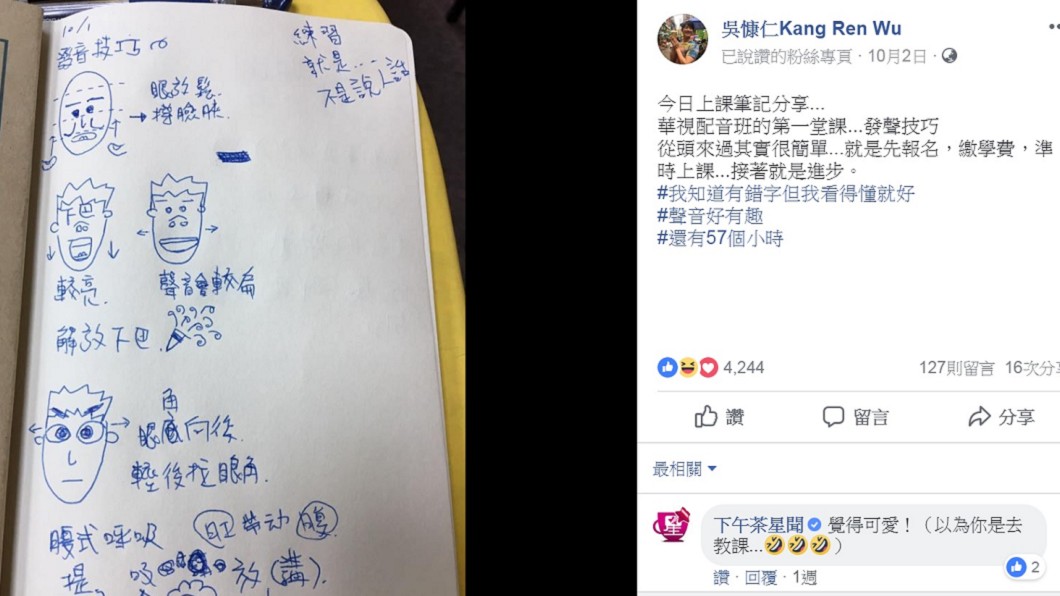 10/1
習音技巧
練習
就是...
不是說人話
眼放鬆.
→撐臉頰.
下巴
較亮.
聲音會較扁
解放下巴.
角
眼向後.
輕後拉眼角.
腹式呼吸
帶动
腹
提。
吸
放(講).
吳慷仁Kang Ren Wu
已說讚的粉絲專頁·10月2日·
今日上課筆記分享...
華視配音班的第一堂課...發聲技巧
從頭來過其實很簡單...就是先報名，繳學費，準
時上課...接著就是進步。
#我知道有錯字但我看得懂就好
#聲音好有趣
#還有57個小時
4,244
127則留言 16次分享
讚 留言 分享
最相關
下午茶星聞 覺得可愛！（以為你是去
教課...🤣🤣🤣）
讚·回覆·1週
2
星